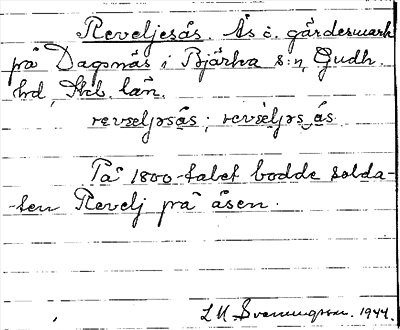 Reveljesås. Ås å gärdesmark
på Dagsnäs i Bjärka s:n, Gudh.
hd, Skb. län.
revseljəsås; revsèljəs ås
På 1800-talet bodde solda-
-ten Revelj på åsen.
L M Svenungsson. 1944.